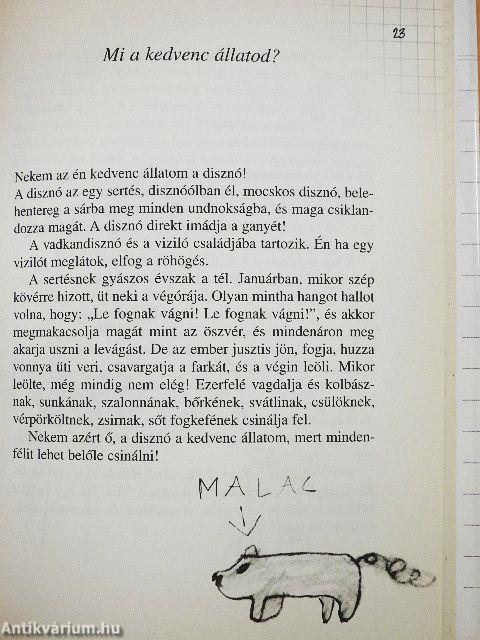 23
Mi a kedvenc állatod?
Nekem az én kedvenc állatom a disznó!
A disznó az egy sertés, disznóólban él, mocskos disznó, bele-
hentereg a sárba meg minden undnokságba, és maga csiklan-
dozza magát. A disznó direkt imádja a ganyét!
A vadkandisznó és a viziló családjába tartozik. Én ha egy
vizilót meglátok, elfog a röhögés.
A sertésnek gyászos évszak a tél. Januárban, mikor szép
kövérre hizott, üt neki a végórája. Olyan mintha hangot hallot
volna, hogy: „Le fognak vágni! Le fognak vágni!", és akkor
megmakacsolja magát mint az öszvér, és mindenáron meg
akarja uszni a levágást. De az ember jusztis jön, fogja, huzza
vonnya üti veri, csavargatja a farkát, és a végin leöli. Mikor
leölte, még mindig nem elég! Ezerfelé vagdalja és kolbász-
nak, sunkának, szalonnának, bőrkének, svátlinak, csülöknek,
vérpörköltnek, zsirnak, sőt fogkefének csinálja fel.
Nekem azért ő, a disznó a kedvenc állatom, mert minden-
félit lehet belőle csinálni!
MALAC
Antikvárium.hu